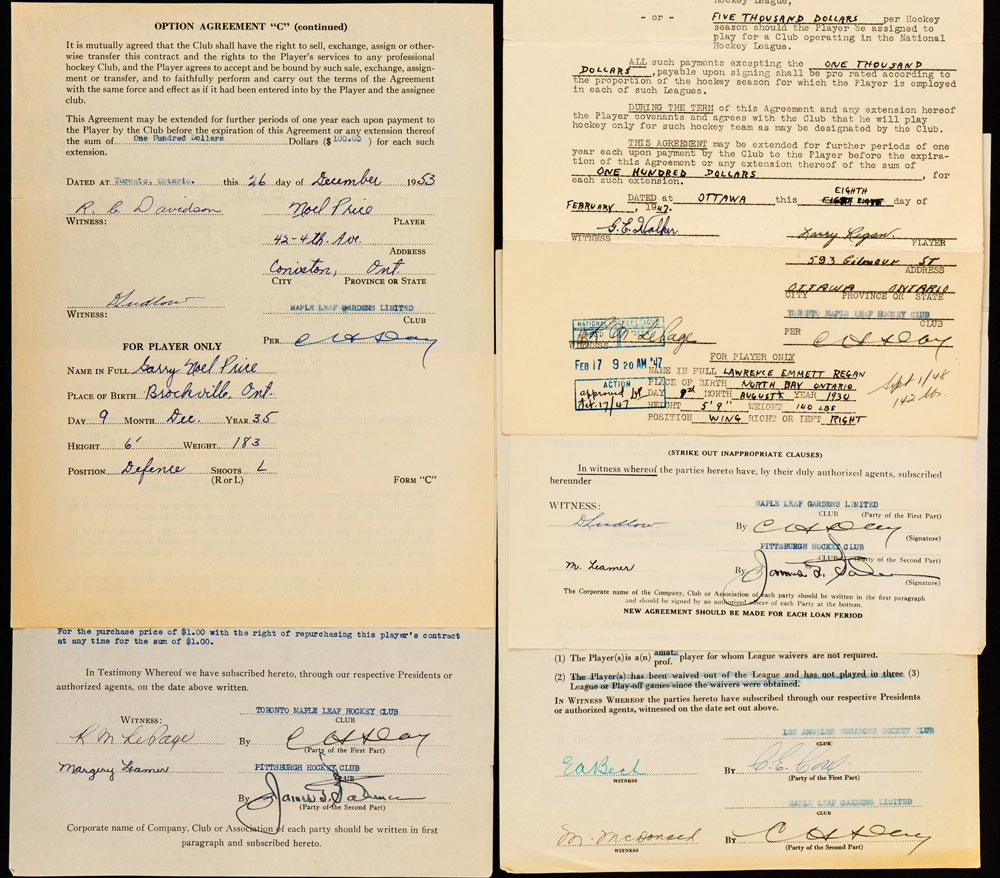 OPTION AGREEMENT "C" (continued)
It is mutually agreed that the Club shall have the right to sell, exchange, assign or other-
wise transfer this contract and the rights to the Player's services to any professional
hockey Club, and the Player agrees to accept and be bound by such sale, exchange, assign-
ment or transfer, and to faithfully perform and carry out the terms of the Agreement
with the same force and effect as if it had been entered into by the Player and the assignee
club.
This Agreement may be extended for further periods of one year each upon payment to
the Player by the Club before the expiration of this Agreement or any extension thereof
the sum of One Hundred Dollars Dollars ($ 100.00 ) for each such
extension.
DATED AT Toronto, Ontario. this 26 day of December 1953
R. C. Davidson Noel Price
WITNESS: PLAYER
42-4th. Ave.
ADDRESS
Coniston, Ont.
CITY PROVINCE OR STATE
DLudlow MAPLE LEAF GARDENS LIMITED
WITNESS: CLUB
PER C H Day
FOR PLAYER ONLY
NAME IN FULL Garry Noel Price
PLACE OF BIRTH Brockville, Ont.
DAY 9 MONTH Dec. YEAR 35
HEIGHT 6' WEIGHT 183
POSITION Defence SHOOTS L
(R or L) FORM "C"
For the purchase price of $1.00 with the right of repurchasing this player's contract
at any time for the sum of $1.00.
In Testimony Whereof we have subscribed hereto, through our respective Presidents or
authorized agents, on the date above written.
TORONTO MAPLE LEAF HOCKEY CLUB
WITNESS: CLUB
R M LePage By C H Day
(Party of the First Part)
Margery Leamer PITTSBURGH HOCKEY CLUB
CLUB
By James
(Party of the Second Part)
Corporate name of Company, Club or Association of each party should be written in first
paragraph and subscribed hereto.
Hockey League,
- or - FIVE THOUSAND DOLLARS per Hockey
season should the Player be assigned to
play for a Club operating in the National
Hockey League.
ALL such payments excepting the ONE THOUSAND
DOLLARS ,payable upon signing shall be pro rated according to
the proportion of the hockey season for which the Player is employed
in each of such Leagues.
DURING THE TERM of this Agreement and any extension hereof
the Player covenants and agrees with the Club that he will play
hockey only for such hockey team as may be designated by the Club.
THIS AGREEMENT may be extended for further periods of one
year each upon payment by the Club to the Player before the expira-
tion of this Agreement or any extension thereof of the sum of
ONE HUNDRED DOLLARS , for
each such extension.
EIGHTH
DATED at OTTAWA this day of
FEBRUARY , 1947.
G.E. Walker Larry Regan.
WITNESS PLAYER
593 Gilmour ST
ADDRESS
OTTAWA ONTARIO
CITY PROVINCE OR STATE
TORONTO MAPLE LEAF HOCKEY CLUB
CLUB
LePage PER C H Day
WITNESS
FEB 17 9 20 AM '47
ACTION
approved
Feb. 17/47
FOR PLAYER ONLY
NAME IN FULL LAWRENCE EMMETT REGAN
PLACE OF BIRTH NORTH BAY ONTARIO
DAY 9th MONTH AUGUST YEAR 1930
HEIGHT 5' 9" WEIGHT 140 LBS
POSITION WING RIGHT OR LEFT RIGHT
Sept 1/48
142 lbs.
(STRIKE OUT INAPPROPRIATE CLAUSES)
In witness whereof the parties hereto have, by their duly authorized agents, subscribed
hereunder
WITNESS: MAPLE LEAF GARDENS LIMITED
CLUB (Party of the First Part)
DLudlow By C H Day
(Signature)
PITTSBURGH HOCKEY CLUB
CLUB (Party of the Second Part)
M. Leamer By James
(Signature)
The Corporate name of the Company, Club or Association of each party should be written in the first paragraph
and should be signed by an authorized officer of each Party at the bottom.
NEW AGREEMENT SHOULD BE MADE FOR EACH LOAN PERIOD
(1) The Player(s) is a(n) amat. prof. player for whom League waivers are not required.
(2) The Player(s) has been waived out of the League and has not played in three (3)
League or Play-off games since the waivers were obtained.
IN WITNESS WHEREOF the parties hereto have subscribed through our respective Presidents
or authorized agents, witnessed on the date set out above.
LOS ANGELES MONARCHS HOCKEY CLUB
CLUB
Ed Bech By
WITNESS (Party of the First Part)
MAPLE LEAF GARDENS LIMITED
CLUB
M. McDonald By C H Day
WITNESS (Party of the Second Part)